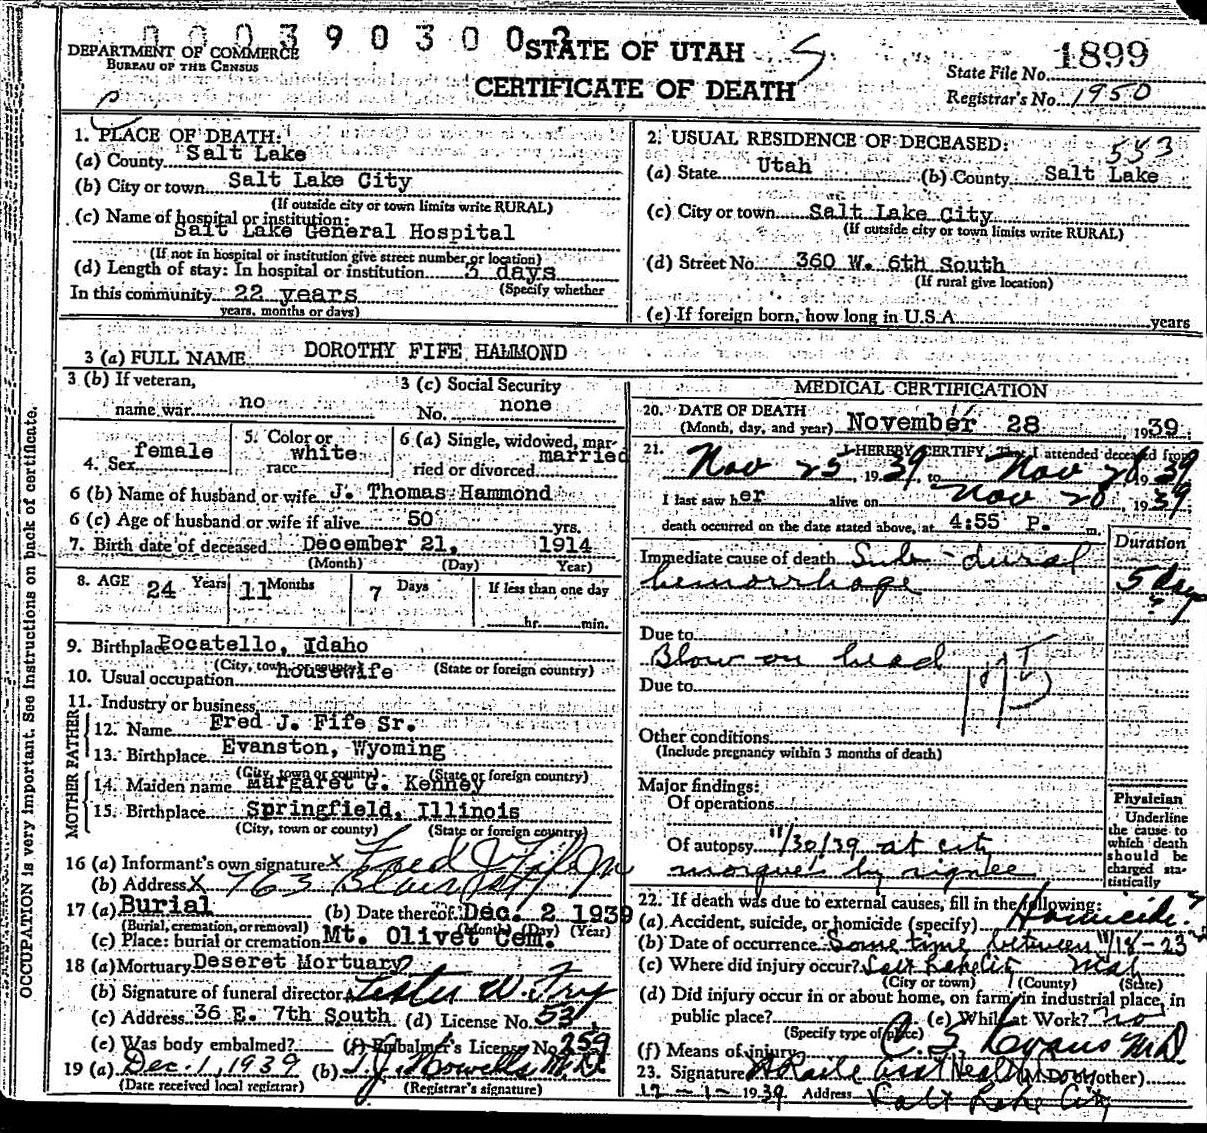 0 0 0 3 9 0 3 0 0
DEPARTMENT OF COMMERCE
BUREAU OF THE CENSUS
STATE OF UTAH
CERTIFICATE OF DEATH
State File No. 1899
Registrar's No. 1950
1. PLACE OF DEATH:
(a) County Salt Lake
(b) City or town Salt Lake City
(If outside city or town limits write RURAL)
(c) Name of hospital or institution:
Salt Lake General Hospital
(If not in hospital or institution give street number or location)
(d) Length of stay: In hospital or institution 3 days
(Specify whether
In this community 22 years
years, months or days)
2. USUAL RESIDENCE OF DECEASED:
553
(a) State Utah (b) County Salt Lake
(c) City or town Salt Lake City
(If outside city or town limits write RURAL)
(d) Street No. 360 W. 6th South
(If rural give location)
(e) If foreign born, how long in U.S.A. years
3 (a) FULL NAME DOROTHY FIFE HAMMOND
3 (b) If veteran,
name war no
3 (c) Social Security
No. none
4. Sex female
5. Color or
race white
6 (a) Single, widowed, mar-
ried or divorced married
6 (b) Name of husband or wife J. Thomas Hammond
6 (c) Age of husband or wife if alive 50 yrs.
7. Birth date of deceased December 21, 1914
(Month) (Day) Year)
8. AGE 24 Years 11 Months 7 Days If less than one day
hr. min.
9. Birthplace Pocatello, Idaho
(City, town or county) (State or foreign country)
10. Usual occupation housewife
11. Industry or business
FATHER
12. Name Fred J. Fife Sr.
13. Birthplace Evanston, Wyoming
(City, town or county) (State or foreign country)
MOTHER
14. Maiden name Margaret G. Kenney
15. Birthplace Springfield, Illinois
(City, town or county) (State or foreign country)
16 (a) Informant's own signature X Fred J Fife
(b) Address X 763
17 (a) Burial (b) Date thereof Dec. 2 1939
(Burial, cremation, or removal) (Month) (Day) (Year)
(c) Place: burial or cremation Mt. Olivet Cem.
18 (a) Mortuary Deseret Mortuary
(b) Signature of funeral director Lester W. Fry
(c) Address 36 E. 7th South (d) License No. 53
(e) Was body embalmed? (f) Embalmer's License No. 259
19 (a) Dec. 1, 1939 (b) T. J. Howells, M.D.
(Date received local registrar) (Registrar's signature)
MEDICAL CERTIFICATION
20. DATE OF DEATH
(Month, day, and year) November 28, 1939
21. I HEREBY CERTIFY, That I attended deceased from
Nov 25, 1939, to Nov 28 1939
I last saw her alive on Nov 28, 1939
death occurred on the date stated above, at 4:55 P. m.
Duration
Immediate cause of death Sub-dural
hemorrhage
5 days
?
Due to
Blow on head
Due to
Other conditions
(Include pregnancy within 3 months of death)
Major findings:
Of operations
Of autopsy 11/30/39 at city
morgue by signee
Physician
Underline
the cause to
which death
should be
charged sta-
tistically
22. If death was due to external causes, fill in the following:
(a) Accident, suicide, or homicide (specify) Homicide?
(b) Date of occurrence Some time between 11/18-23
(c) Where did injury occur? Salt Lake City Utah
(City or town) (County) (State)
(d) Did injury occur in or about home, on farm, in industrial place, in
public place? (e) While at Work? no
(Specify type of place)
(f) Means of injury
23. Signature (M.D. or other)
12-1-1939 Address Salt Lake City
OCCUPATION is very important. See instructions on back of certificate.